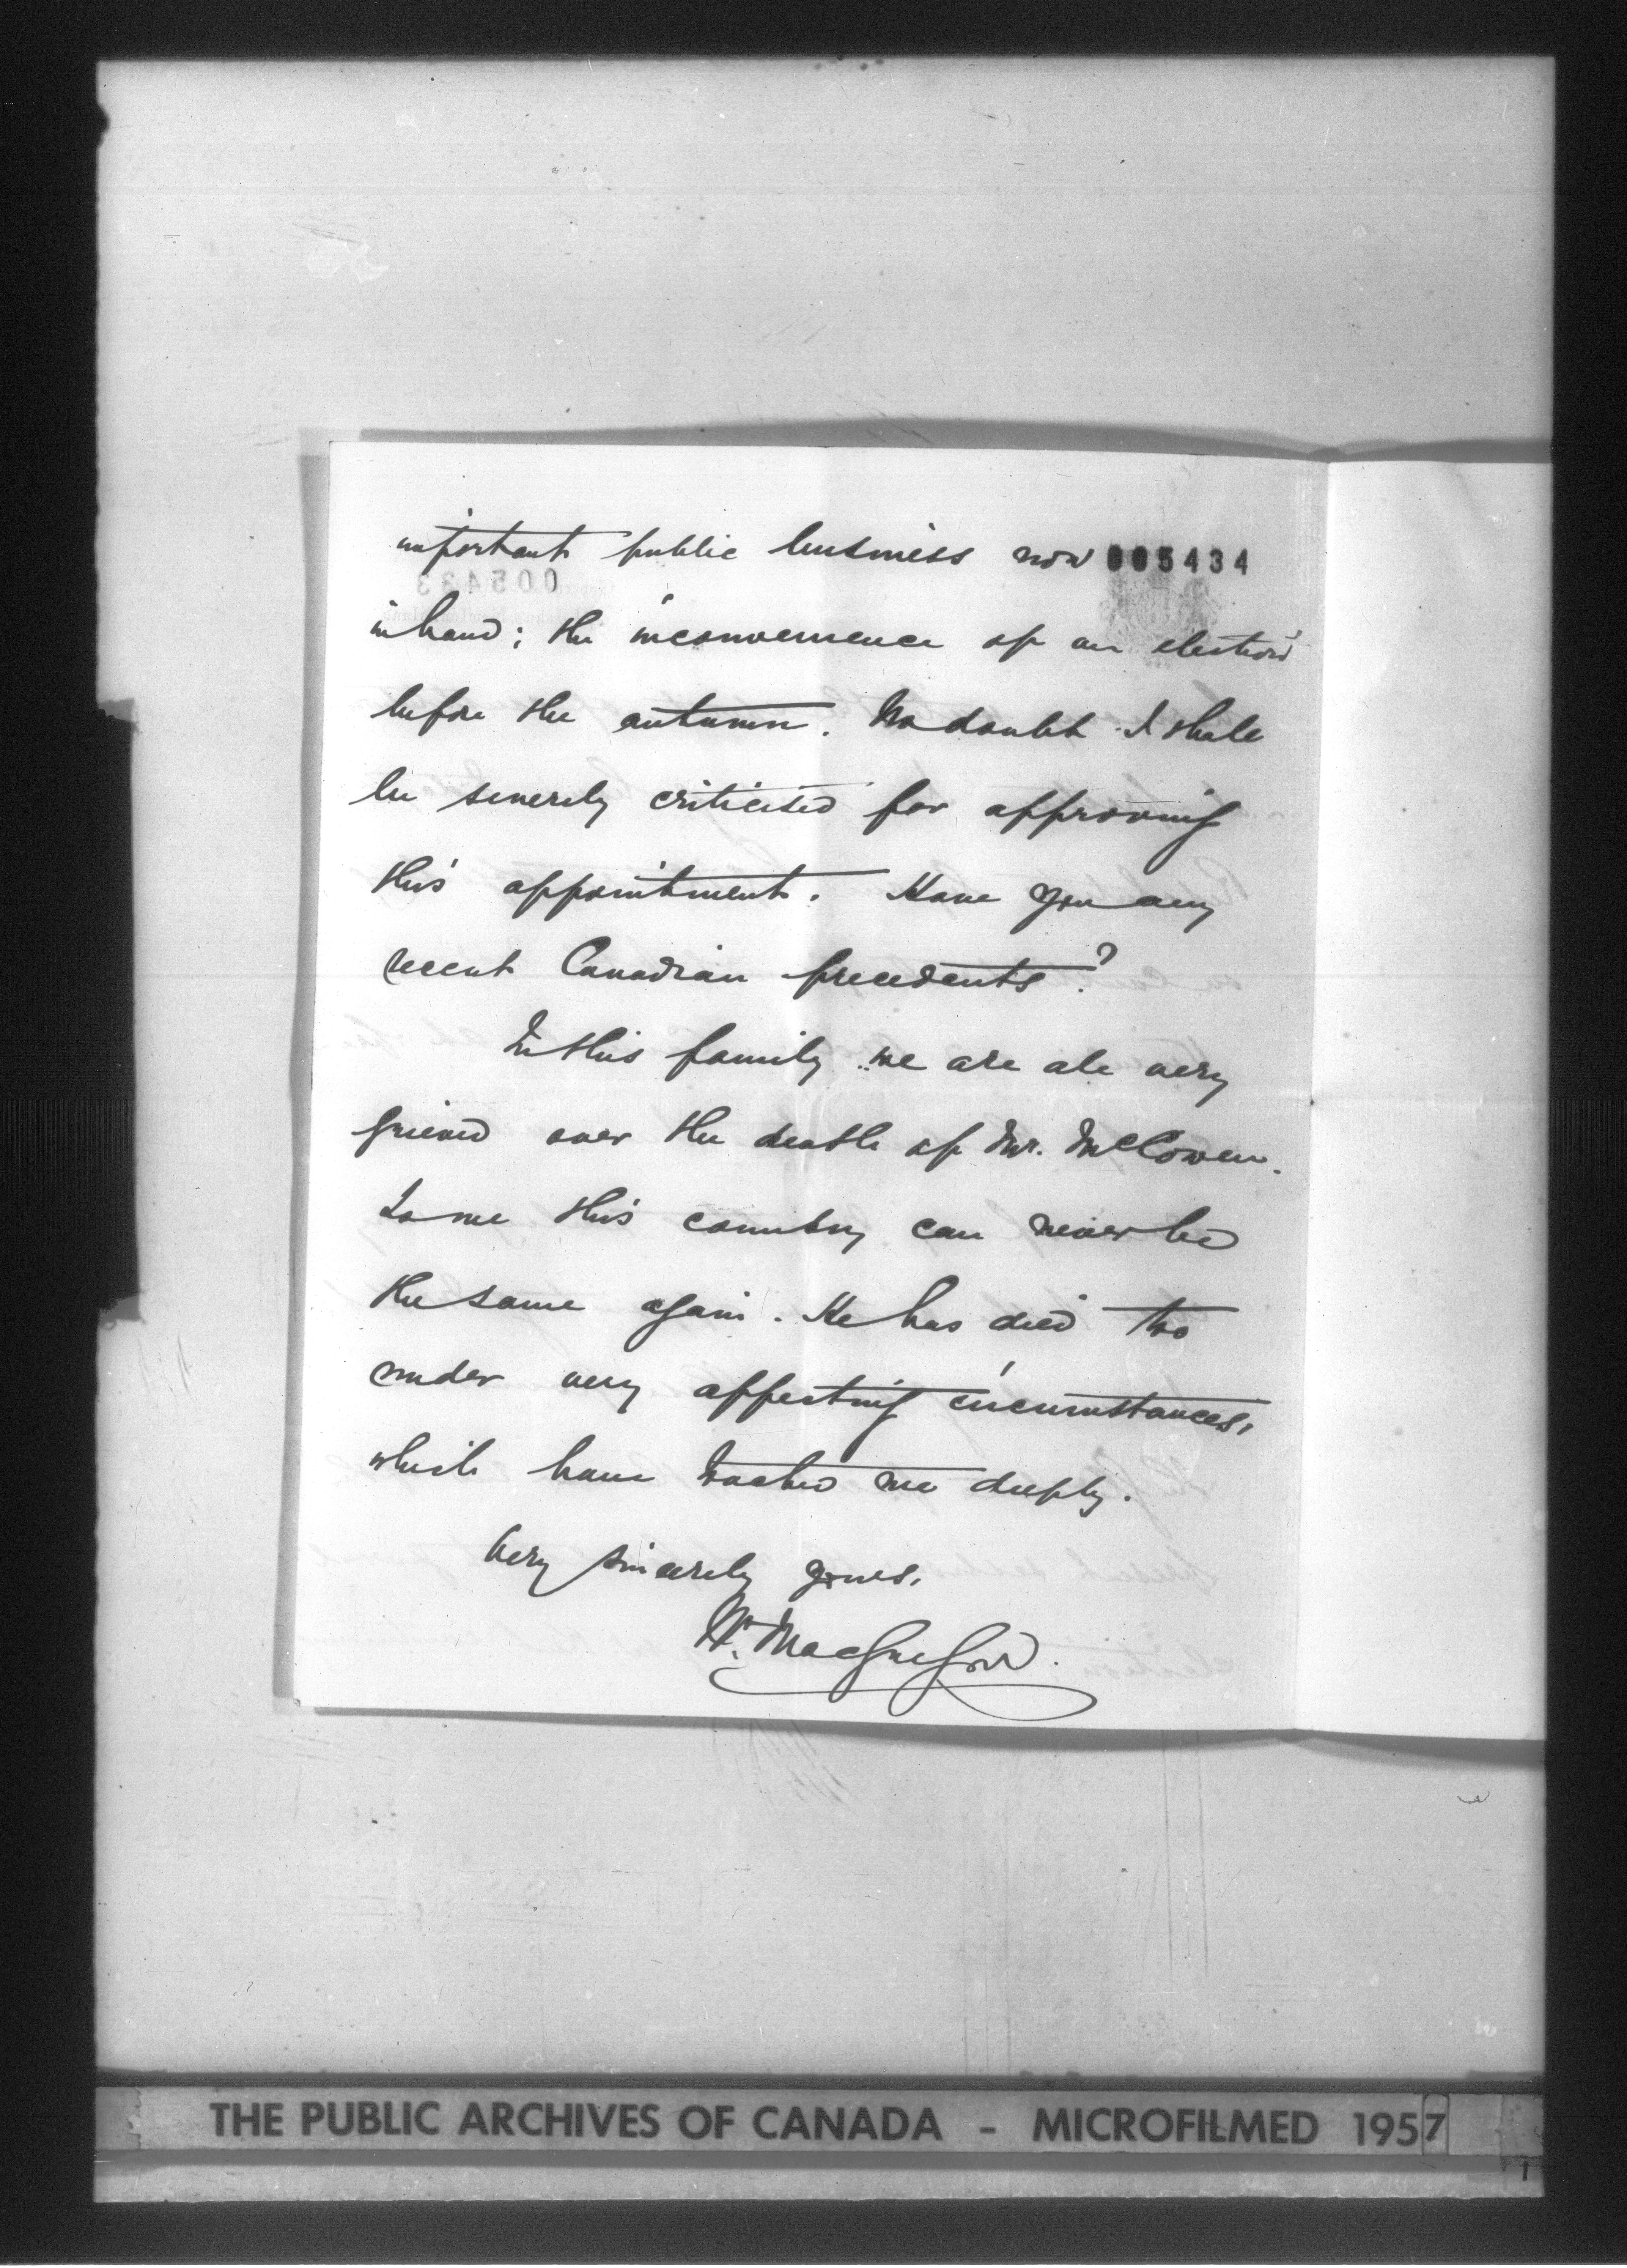 important public business now 005434
in hand; the inconvenience of an election
before the autumn. No doubt I shall
be severely criticised for approving
this appointment. Have you any
recent Canadian precedents?
In this family we are all very
grieved over the death of Mr. McCowen.
To me this country can never be
the same again. He has died too
under very affecting circumstances,
which have touched me deeply.
Very sincerely yours,
Wm. MacGregor.
THE PUBLIC ARCHIVES OF CANADA - MICROFILMED 1957
1